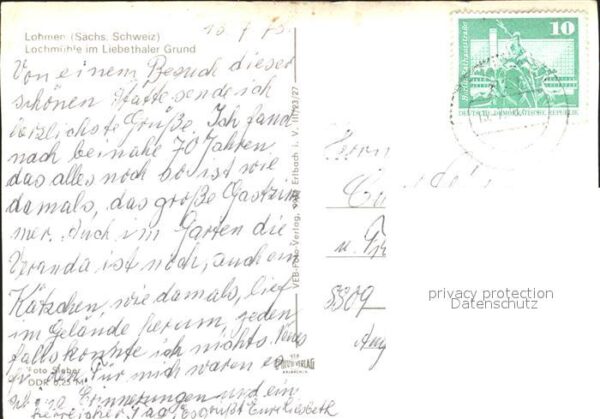 13. 7. 75.
Lohmen (Sächs. Schweiz)
Lochmühle im Liebethaler Grund
Von einem Besuch dieser
schönen Stätte sende ich
herzlichste Grüße. Ich fand
nach beinahe 70 Jahren
das alles noch so ist wie
damals, das große Gastzim
mer. Auch im Garten die
Veranda ist noch, auch ein
Kätzchen, wie damals, lief
im Gelände herum, jeden
falls konnte ich nichts
Für mich waren es
Erinnerungen und ein
herrlicher Tag. Es grüßt Eure Lisbeth
Foto Sieber
DDR 0,25 M
VEB-Foto-Verlag, Erlbach i. V. III/123/27
VEB
FOTO-VERLAG
ERLBACH
10
DEUTSCHE DEMOKRATISCHE REPUBLIK
Herrn
u.
privacy protection
Datenschutz